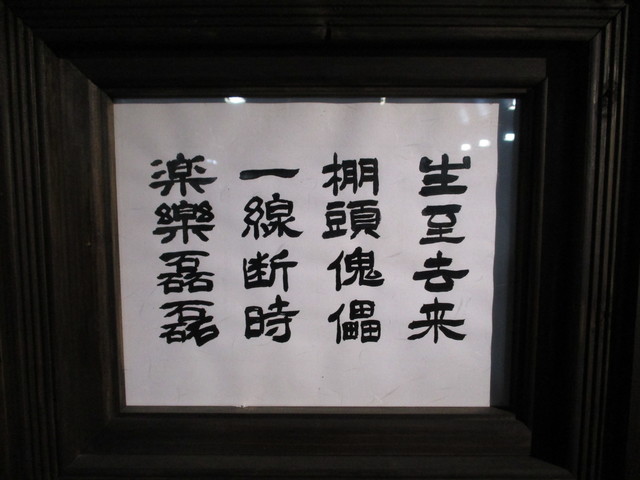 生至去来
棚頭傀儡
一線断時
楽樂磊磊